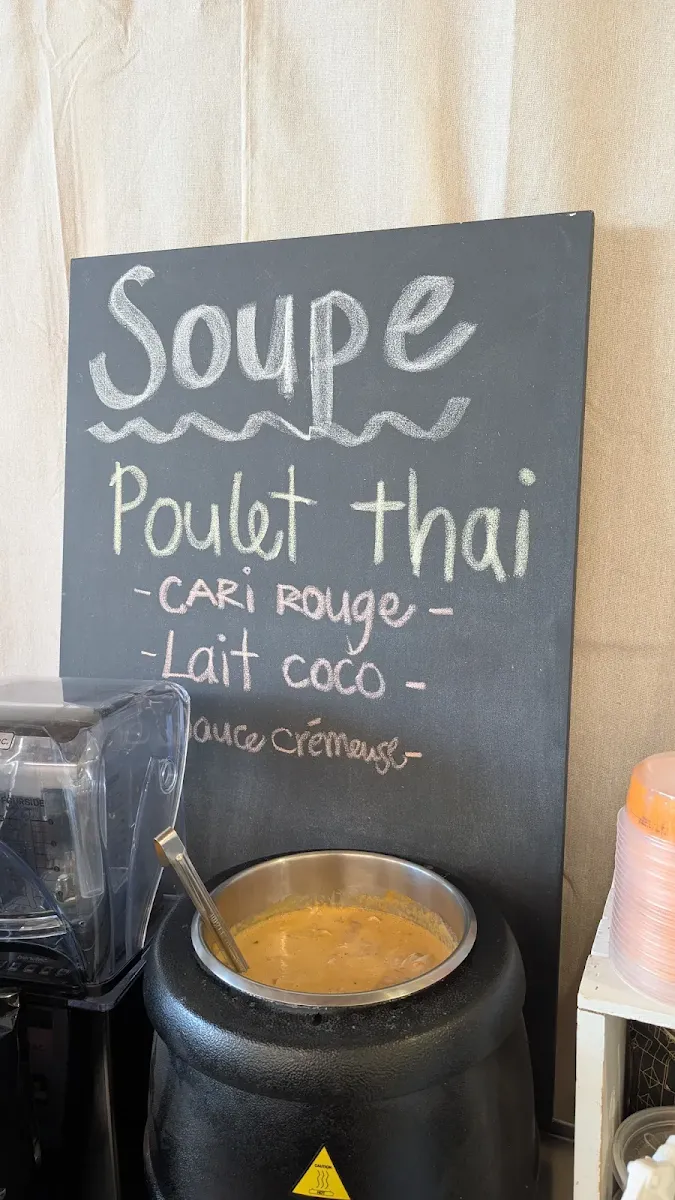 Soupe
Poulet thai
- CARi ROUGE -
- Lait coco -
sauce crémeuse -
CAUTION
HOT